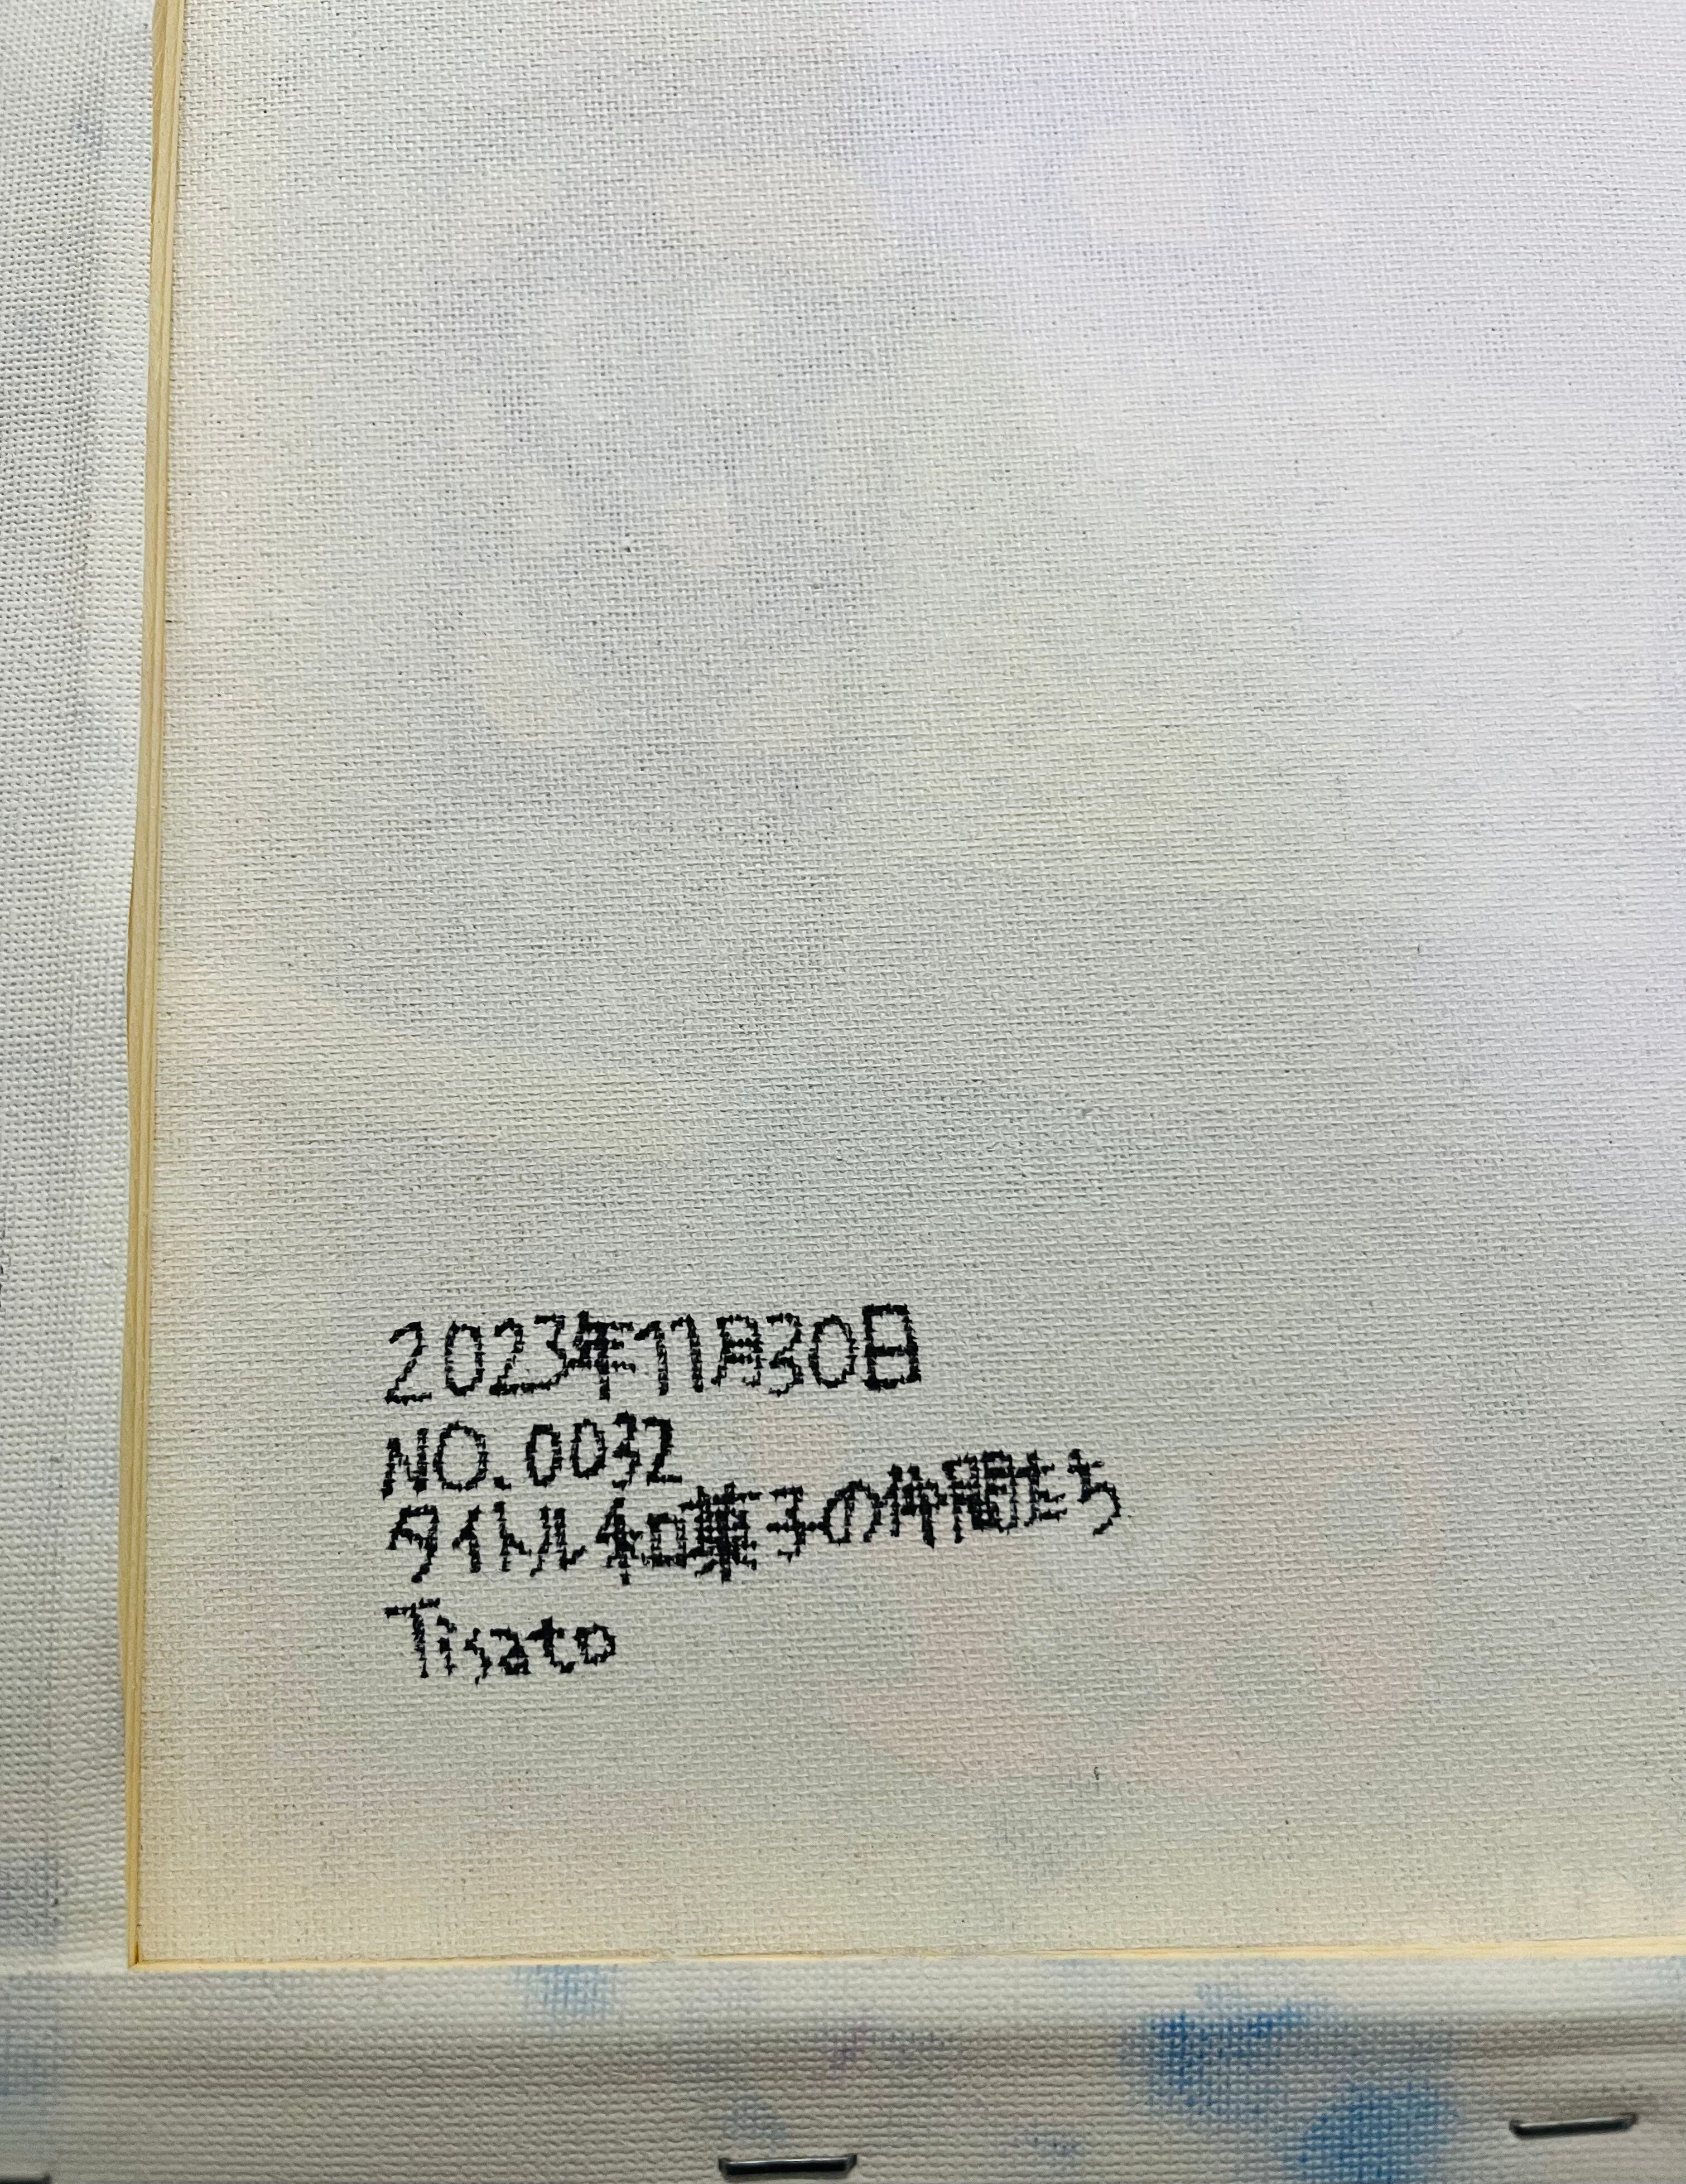 2023年11月30日
NO.0032
タイトル和菓子の仲間たち
Tisato